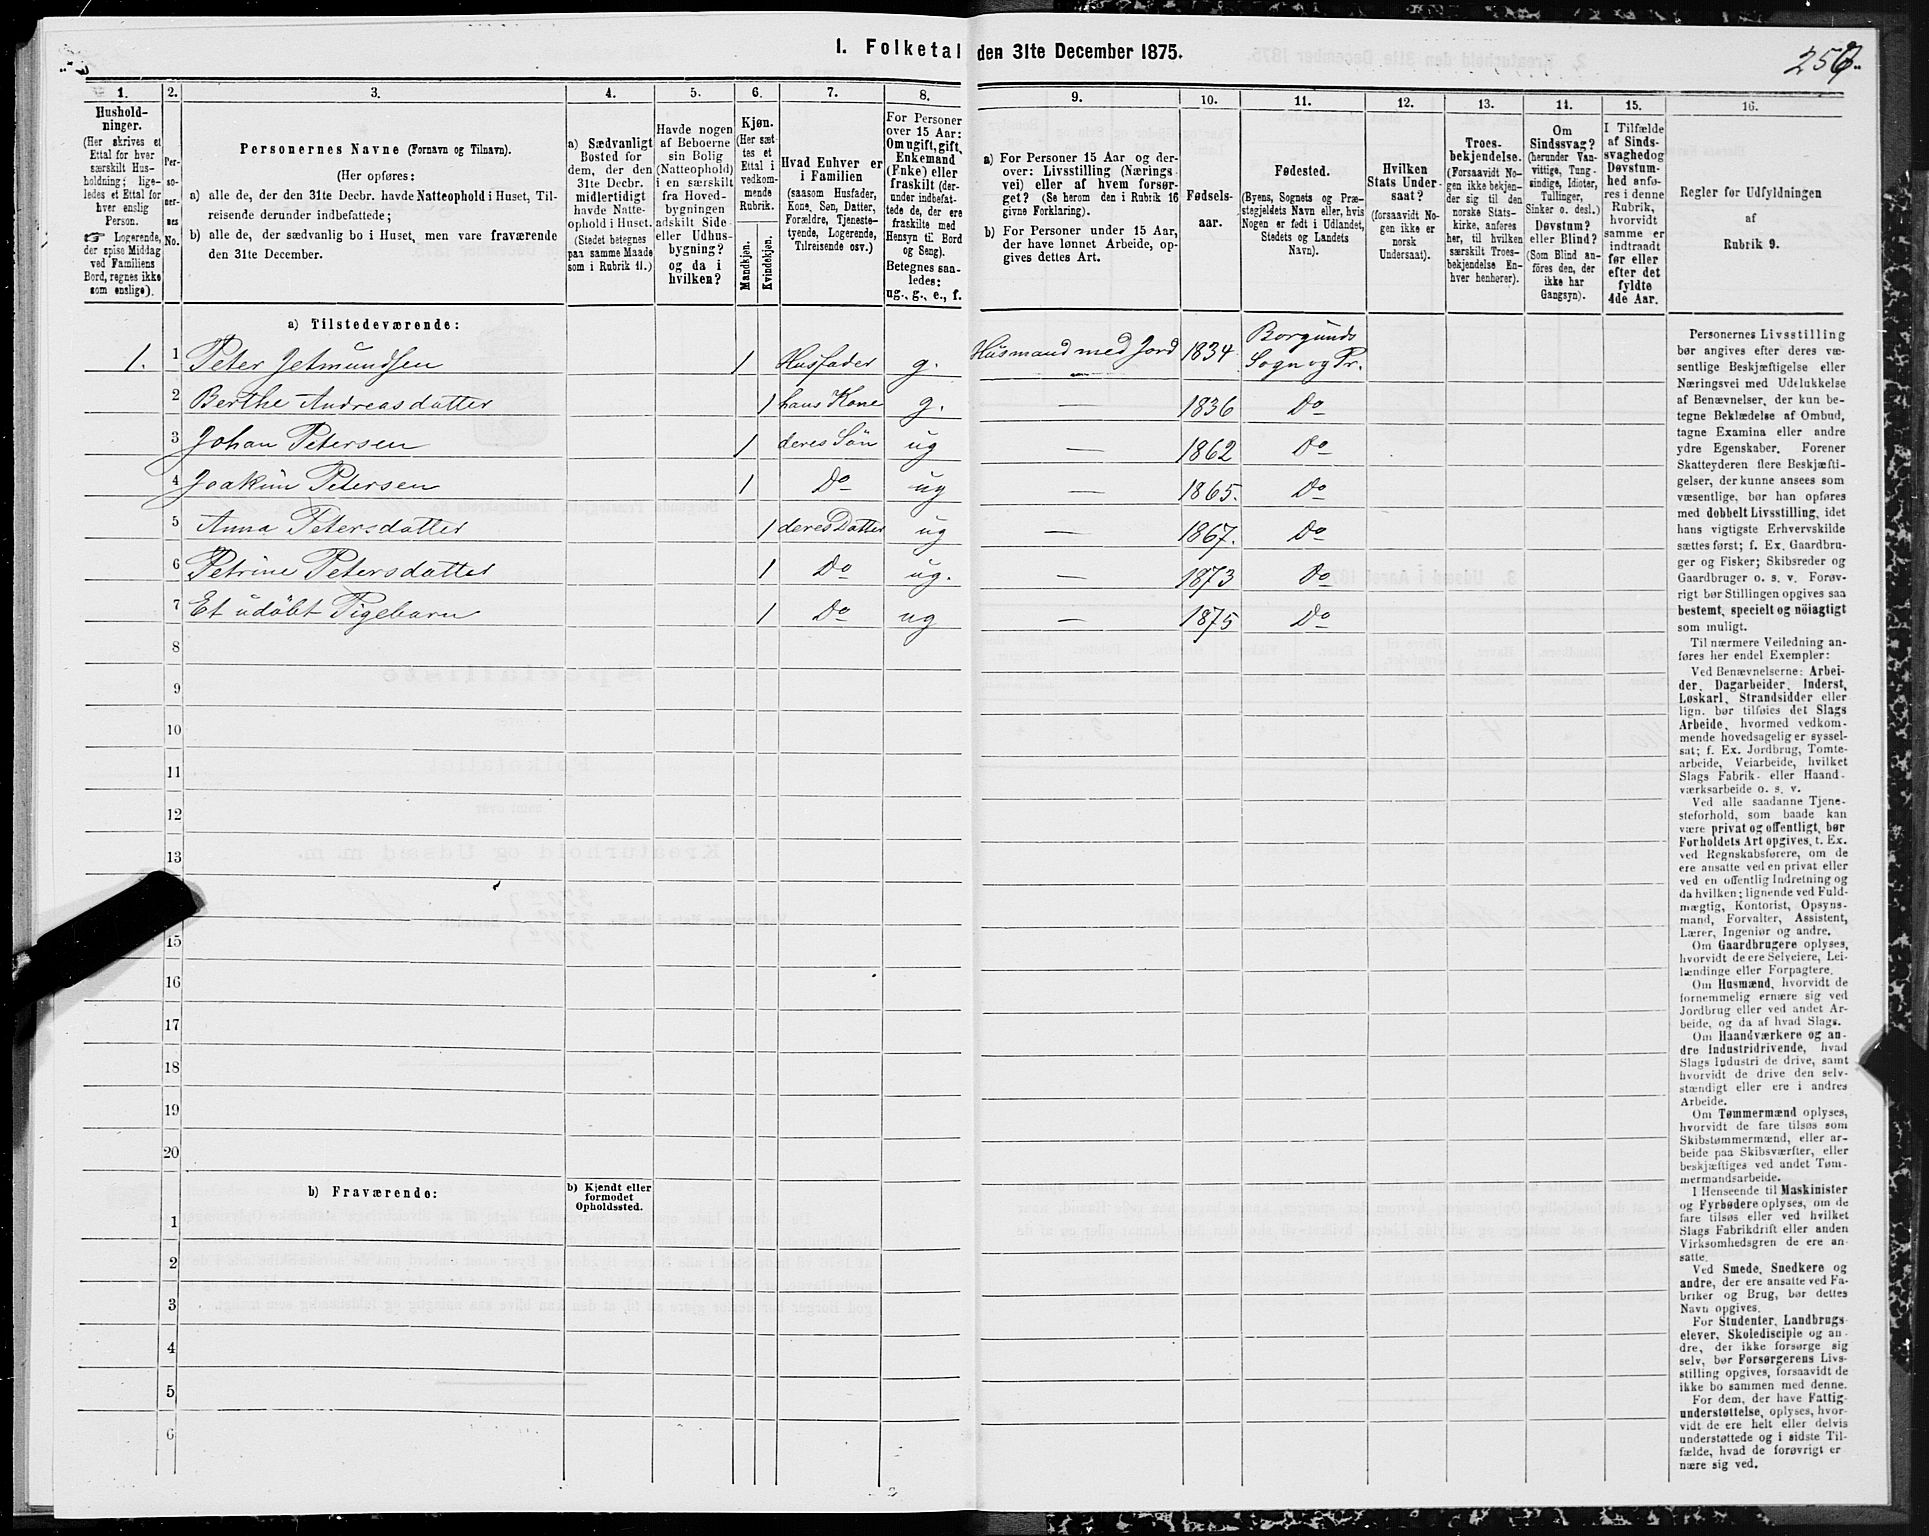 1. Folketal den 31te December 1875.
1.
2.
3.
4.
5.
6.
7.
8.
9.
10.
11.
12.
13.
14.
15.
16.
Hushold-
ninger.
(Her skrives et
Ettal for hver
særskilt Hus-
holdning; lige-
ledes et Ettal for
hver enslig
Person.
☞ Logerende,
der spise Middag
ved Familiens
Bord, regnes ikke
som enslige).
Per-
so-
ner-
nes
No.
Personernes Navne (Fornavn og Tilnavn).
(Her opføres:
a) alle de, der den 31te Decbr. havde Natteophold i Huset, Til-
reisende derunder indbefattede;
b) alle de, der sædvanlig bo i Huset, men vare fraværende
den 31te December.
a) Sædvanligt
Bosted for
dem, der den
31te Decbr.
midlertidigt
havde Natte-
ophold i Huset.
(Stedet betegnes
paa samme Maade
som i Rubrik 11.)
Havde nogen
af Beboerne
sin Bolig
(Natteophold)
i en særskilt
fra Hoved-
bygningen
adskilt Side-
eller Udhus-
bygning?
og da i
hvilken?
Kjøn.
(Her sæt-
tes et
Ettal i
vedkom-
mende
Rubrik.
Mandkjøn.
Kvindekjøn.
Hvad Enhver er
i Familien
(saasom Husfader,
Kone, Søn, Datter,
Forældre, Tjeneste-
tyende, Logerende,
Tilreisende osv.)
For Personer
over 15 Aar:
Om ugift, gift,
Enkemand
(Enke) eller
fraskilt (der-
under indbefat-
tede de, der ere
fraskilte med
Hensyn til Bord
og Seng).
Betegnes saa-
ledes:
ug., g., e., f.
a) For Personer 15 Aar og der-
over: Livsstilling (Nærings-
vei) eller af hvem forsør-
get? (Se herom den i Rubrik 16
givne Forklaring).
b) For Personer under 15 Aar,
der have lønnet Arbeide, op-
gives dettes Art.
Fødsels-
aar.
Fødested.
(Byens, Sognets og Præ-
stegjeldets Navn eller, hvis
Nogen er født i Udlandet,
Stedets og Landets
Navn).
Hvilken
Stats Under-
saat?
(forsaavidt No-
gen ikke er
norsk
Undersaat).
Troes-
bekjendelse.
(Forsaavidt No-
gen ikke bekjen-
der sig til den
norske Stats-
kirke, anføres
her, til hvilken
særskilt Troes-
bekjendelse En-
hver henhører).
Om
Sindssvag?
(herunder Van-
vittige, Tung-
sindige, Idioter,
Tullinger,
Sinker o. desl.)
Døvstum?
eller Blind?
(Som Blind an-
føres den, der
ikke har
Gangsyn).
I Tilfælde
af Sinds-
svaghed og
Døvstum-
hed anfø-
res i denne
Rubrik,
hvorvidt
samme er
indtraadt
før eller
efter det
fyldte
4de Aar.
Regler for Udfyldningen
af
Rubrik 9.
a) Tilstedeværende:
1. 1 Peter Jetmundsen 1 Husfader g. Husmand med Jord 1834 Borgunds Sogn og Pr.
2 Berthe Andreasdatter 1 hans Kone g. — 1836 Do
3 Johan Petersen 1 deres Søn ug — 1862 Do
4 Joakim Petersen 1 Do ug — 1865. Do
5 Anna Petersdatter 1 deres Datter ug — 1867. Do
6 Petrine Petersdatter 1 Do ug. — 1873 Do
7 Et udøbt Pigebarn 1 Do ug — 1875 Do
8
9
10
11
12
13
15
16
17
18
19
20
b) Fraværende:
b) Kjendt eller
formodet
Opholdssted.
1
2
3
4
5
6
Personernes Livsstilling
bør angives efter deres væ-
sentlige Beskjæftigelse eller
Næringsvei med Udelukkelse
af Benævnelser, der kun be-
tegne Beklædelse af Ombud,
tagne Examina eller andre
ydre Egenskaber. Forener
Skatteyderen flere Beskjæfti-
gelser, der kunne ansees som
væsentlige, bør han opføres
med dobbelt Livsstilling, idet
hans vigtigste Erhvervskilde
sættes først; f. Ex. Gaardbru-
ger og Fisker; Skibsreder og
Gaardbruger o. s. v. Forøv-
rigt bør Stillingen opgives saa
bestemt, specielt og nöiagtigt
som muligt.
Til nærmere Veiledning an-
føres her endel Exempler:
Ved Benævnelserne: Arbei-
der, Dagarbeider, Inderst,
Løskarl, Strandsidder eller
lign. bør tilføies det Slags
Arbeide, hvormed vedkom-
mende hovedsagelig er syssel-
sat; f. Ex. Jordbrug, Tomte-
arbeide, Veiarbeide, hvilket
Slags Fabrik- eller Haand-
værksarbeide o. s. v.
Ved alle saadanne Tjene-
steforhold, som baade kan
være privat og offentligt, bør
Forholdets Art opgives, t. Ex.
ved Regnskabsførere, om de
ere ansatte ved en privat eller
ved en offentlig Indretning og
da hvilken; lignende ved Fuld-
mægtig, Kontorist, Opsyns-
mand, Forvalter, Assistent,
Lærer, Ingeniør og andre.
Om Gaardbrugere oplyses,
hvorvidt de ere Selveiere, Lei-
lændinge eller Forpagtere.
Om Husmænd, hvorvidt de
fornemmelig ernære sig ved
Jordbrug eller ved andet Ar-
beide, og da af hvad Slags.
Om Haandværkere og an-
dre Industridrivende, hvad
Slags Industri de drive, samt
hvorvidt de drive den selv-
stændigt eller ere i andres
Arbeide.
Om Tømmermænd oplyses,
hvorvidt de fare tilsøs som
Skibstømmermænd, eller ar-
beide paa Skibsværfter, eller
beskjæftiges ved andet Tøm-
mermandsarbeide.
I Henseende til Maskinister
og Fyrbødere oplyses, om de
fare tilsøs eller ved hvilket
Slags Fabrikdrift eller anden
Virksomhedsgren de ere an-
satte.
Ved Smede, Snedkere og
andre, der ere ansatte ved Fa-
briker og Brug, bør dettes
Navn opgives.
For Studenter, Landbrugs-
elever, Skoledisciple og an-
dre, der ikke forsørge sig
selv, bør Forsørgerens Livs-
stilling opgives, forsaavidt de
ikke bo sammen med denne.
For dem, der have Fattig-
understøttelse, oplyses, hvor-
vidt de ere helt eller delvis
understøttede og i sidste Til-
fælde, hvad de forøvrigt er
nære sig ved.